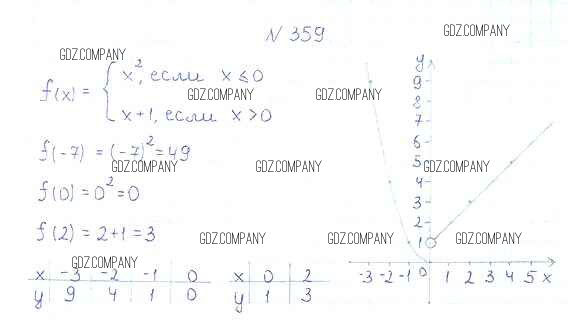 N 359
GDZ.COMPANY
GDZ.COMPANY
f(x) = { x², если x ≤ 0
x+1, если x > 0
GDZ.COMPANY
GDZ.COMPANY
f(-7) = (-7)² = 49
GDZ.COMPANY
GDZ.COMPANY
f(0) = 0² = 0
f(2) = 2+1 = 3
GDZ.COMPANY
GDZ.COMPANY
GDZ.COMPANY
x -3 -2 -1 0
y 9 4 1 0
x 0 2
y 1 3
y
9
8
7
6
5
4
3
2
1
-3 -2 -1 0 1 2 3 4 5 x